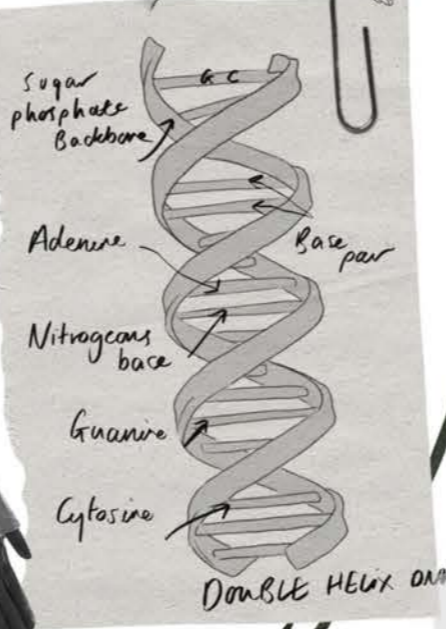 G C
Sugar
phosphate
Backbone
Adenine
Base
pair
Nitrogeous
base
Guanine
Cytosine
DOUBLE HELIX DNA